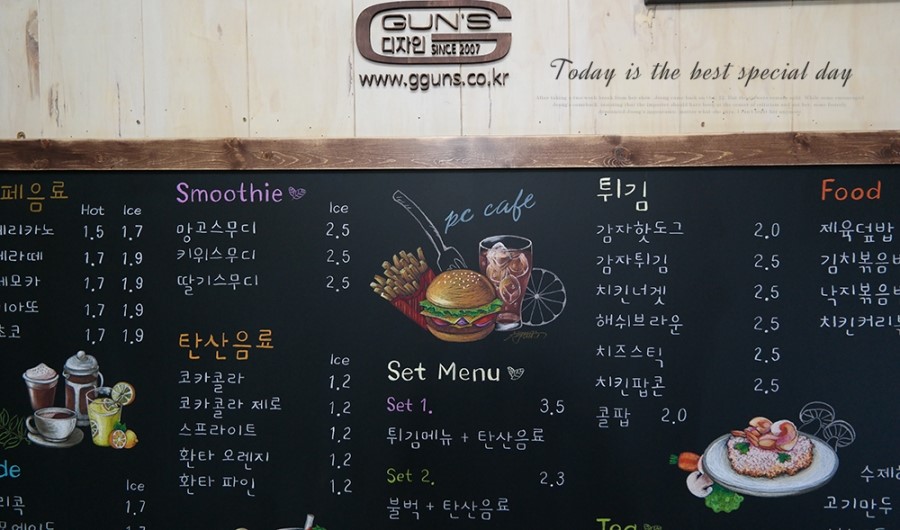 GGUN'S
디자인 SINCE 2007
www.gguns.co.kr
Today is the best special day
페음료
Hot Ice
메리카노 1.5 1.7
페라떼 1.7 1.9
페모카 1.7 1.9
1.7 1.9
초코 1.7 1.9
Smoothie
Ice
망고스무디 2.5
키위스무디 2.5
딸기스무디 2.5
탄산음료
Ice
코카콜라 1.2
코카콜라 제로 1.2
스프라이트 1.2
환타 오렌지 1.2
환타 파인 1.2
pc cafe
Set Menu
Set 1. 3.5
튀김메뉴 + 탄산음료
Set 2. 2.3
불벅 + 탄산음료
튀김
감자핫도그 2.0
감자튀김 2.5
치킨너겟 2.5
해쉬브라운 2.5
치즈스틱 2.5
치킨팝콘 2.5
콜팝 2.0
Tea
Food
제육덮밥
김치볶음
낙지볶음
치킨커리
수제
고기만두
de
Ice
1.7